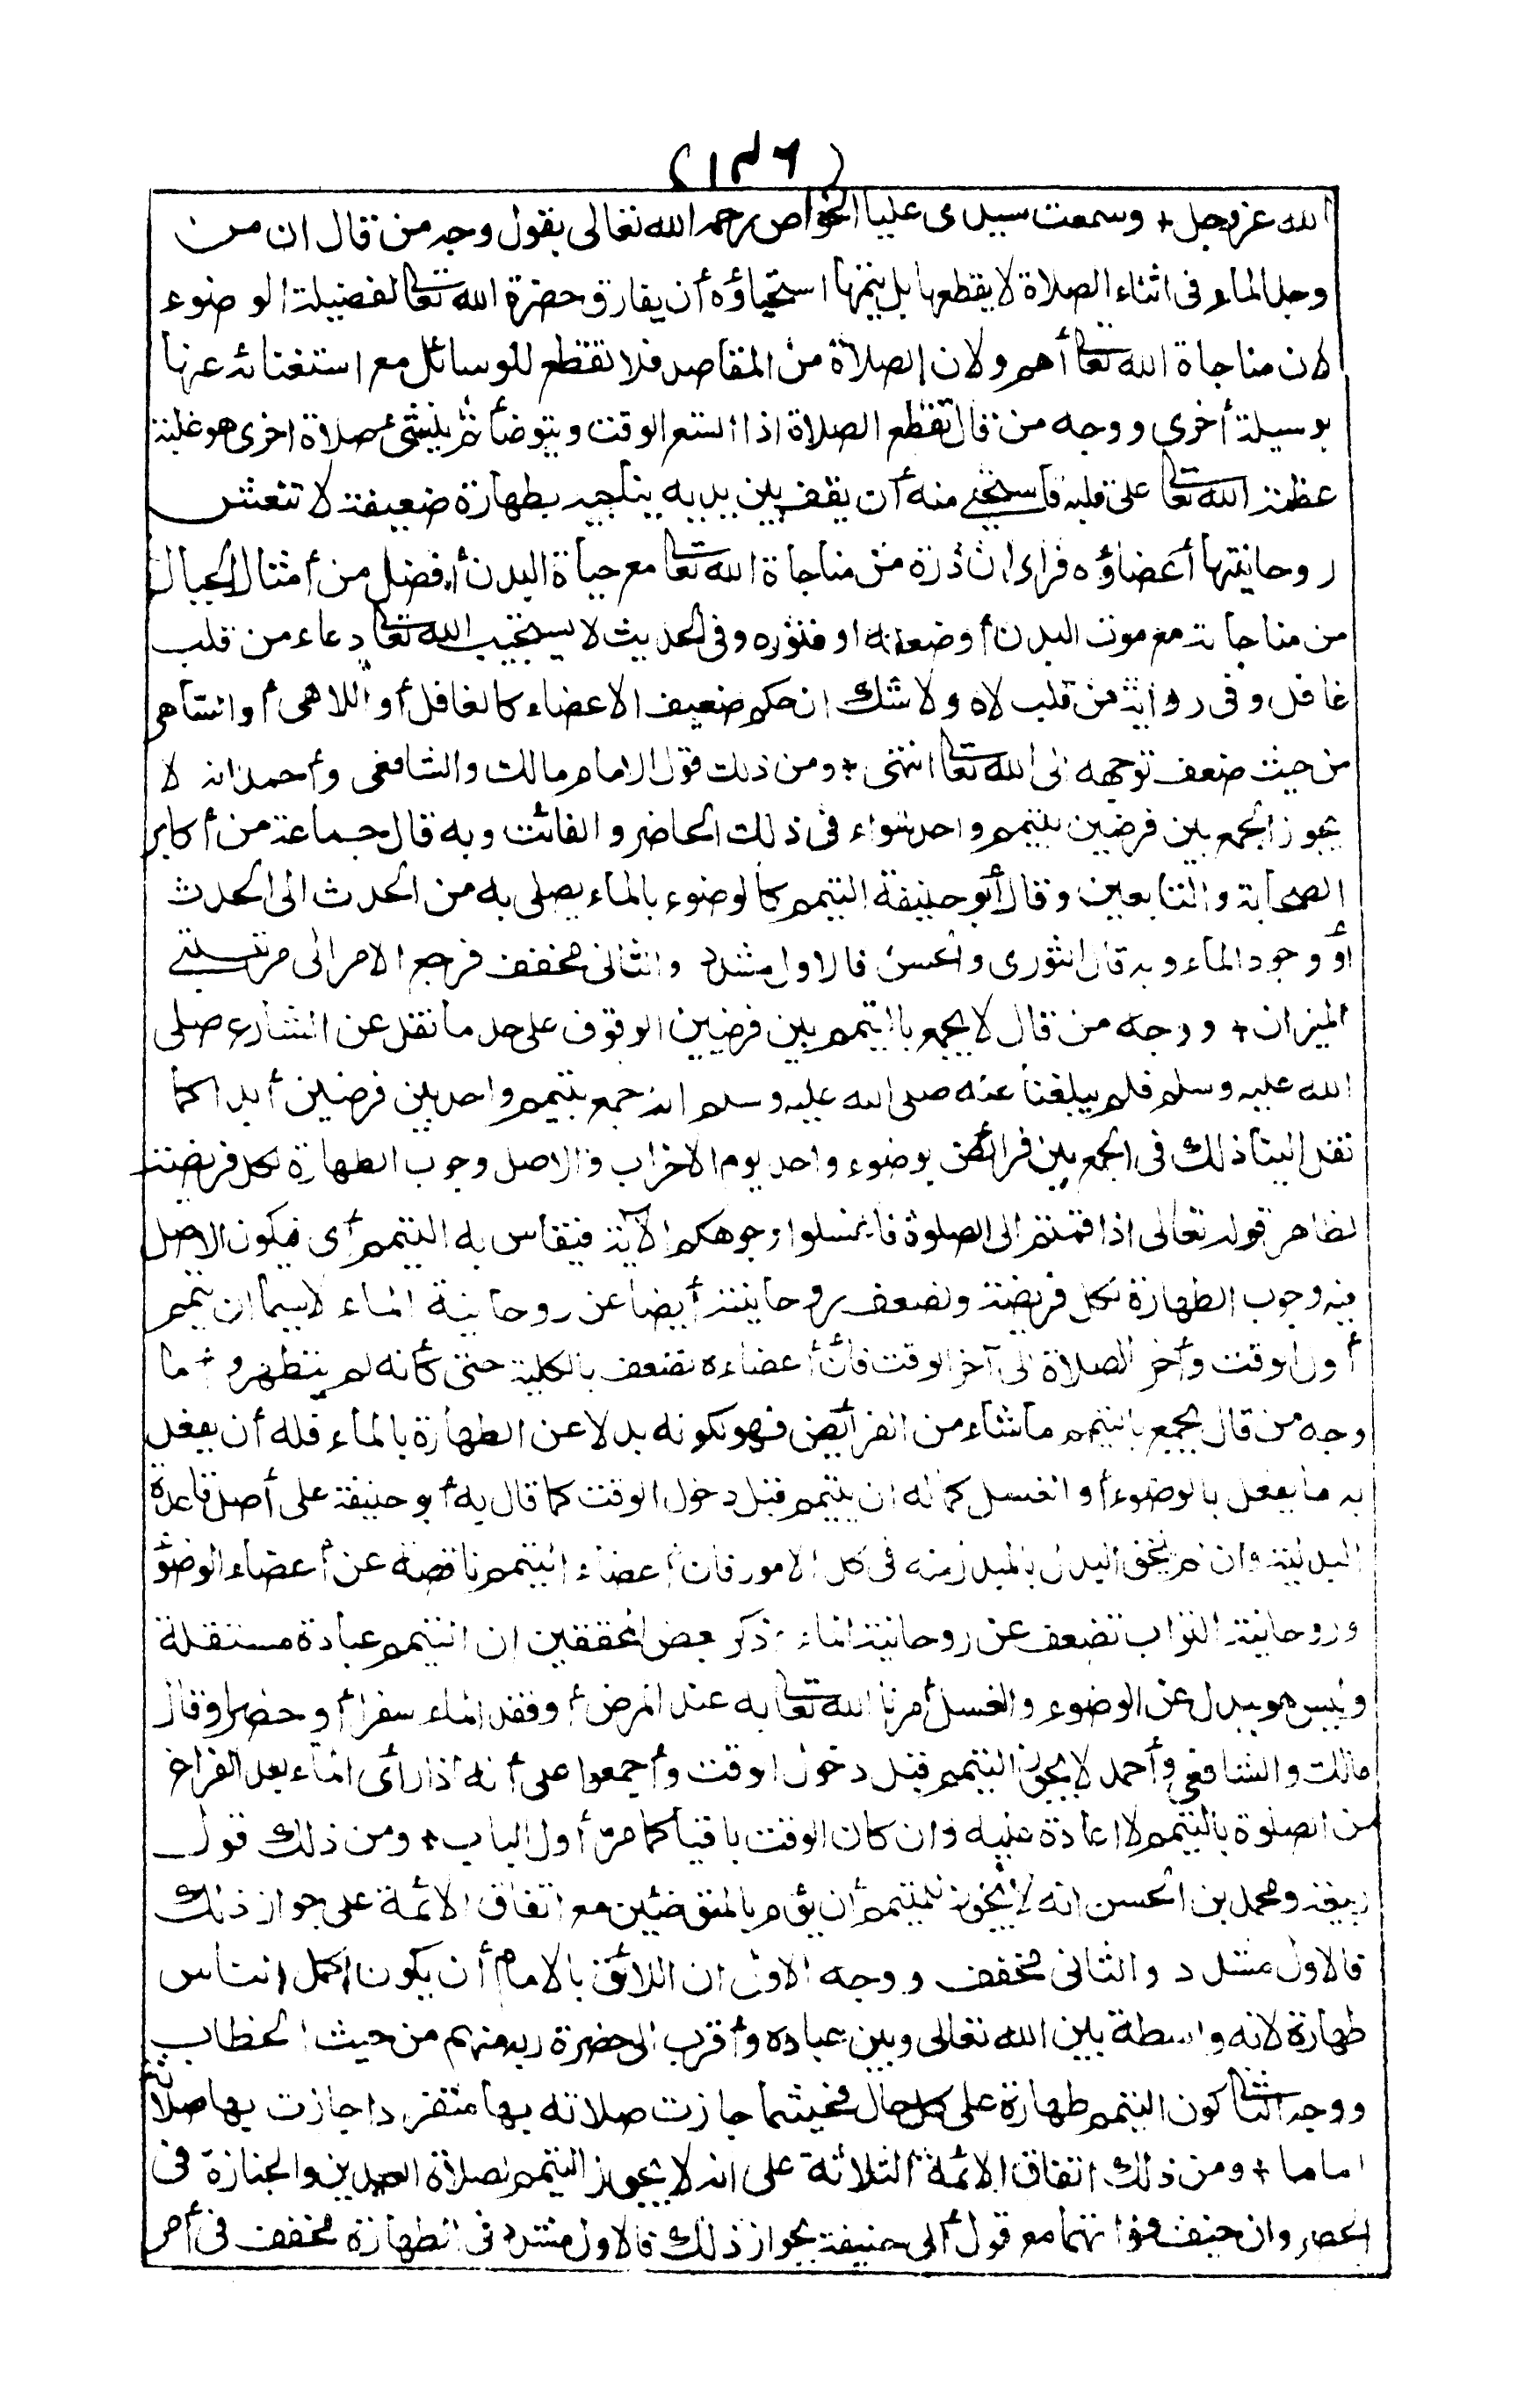 (١٣٦)
الله عز وجل + وسمعت سيدى عليا الخواص رحمه الله تعالى يقول وجه من قال ان من
وجد الماء فى اثناء الصلاة لا يقطعها بل يتمها استحياؤه أن يفارق حضرة الله تعا لفضيلة الوضوء
لان مناجاة الله تعا أهم ولان الصلاة من المقاصد فلا تقطع للوسائل مع استغنائه عنها
بوسيلة أخرى ووجه من قال تقطع الصلاة اذا اتسع الوقت ويتوضأ ثم ينشئ صلاة اخرى هو غلبة
عظمة الله تعا على قلبه فاستحيى منه أن يقف بين يديه يناجيه بطهارة ضعيفة لا تنعش
روحانيتها أعضاؤه فراى ان ذرة من مناجاة الله تعا مع حياة البدن أفضل من أمثال الجبال
من مناجاته مع موت البدن أو ضعفه او فتوره وفى الحديث لا يستجيب الله تعا دعاء من قلب
غافل وفى رواية من قلب لاه ولا شك ان حكم ضعيف الاعضاء كالغافل أو اللاهى أو الساهى
من حيث ضعف توجهه الى الله تعا انتهى + ومن ذلك قول الامام مالك والشافعى وأحمد انه لا
يجوز الجمع بين فرضين بتيمم واحد سواء فى ذلك الحاضر والفائت وبه قال جماعة من أكابر
الصحابة والتابعين وقال أبو حنيفة التيمم كالوضوء بالماء يصلى به من الحدث الى الحدث
أو وجود الماء وبه قال الثورى والحسن فالاول مشدد والثانى مخفف فرجع الامر الى مرتبتى
الميزان + ووجه من قال لا يجمع بالتيمم بين فرضين الوقوف على حد ما نقل عن الشارع صلى
الله عليه وسلم فلم يبلغنا عنه صلى الله عليه وسلم انه جمع بتيمم واحد بين فرضين أبدا كما
نقل الينا ذلك فى الجمع بين فرائض بوضوء واحد يوم الاخراب والاصل وجوب الطهارة لكل فريضة
لظاهر قوله تعالى اذا قمتم الى الصلوة فاغسلوا وجوهكم الآية فيقاس به التيمم أى فيكون الاصل
فيه وجوب الطهارة لكل فريضة ولضعف روحانيته أيضا عن روحانية الماء لا سيما ان تيمم
أول الوقت وأخر الصلاة الى آخر الوقت فان أعضاءه تضعف بالكلية حتى كأنه لم يتطهر وأما
وجه من قال يجمع بالتيمم ما شاء من الفرائض فهو لكونه بدلا عن الطهارة بالماء فله أن يفعل
به ما يفعل بالوضوء أو الغسل كما له ان يتيمم قبل دخول الوقت كما قال به أبو حنيفة على أصل قاعدة
البدلية وان لم يلحق البدل بالمبدل منه فى كل الامور فان أعضاء التيمم ناقصة عن أعضاء الوضوء
وروحانية التراب تضعف عن روحانية الماء وذكر بعض المحققين ان التيمم عبادة مستقلة
وليس هو ببدل عن الوضوء والغسل أمرنا الله تعا به عند المرض أو فقد الماء سفرا أو حضرا وقال
مالك والشافعى وأحمد لا يجوز التيمم قبل دخول الوقت وأجمعوا على أنه اذا رأى الماء بعد الفراغ
من الصلوة بالتيمم لا اعادة عليه وان كان الوقت باقيا كما مر أول الباب + ومن ذلك قول
ربيعة ومحمد بن الحسن انه لا يجوز للمتيمم أن يؤم بالمتوضئين مع اتفاق الائمة على جواز ذلك
فالاول مشدد والثانى مخفف ووجه الاول ان اللائق بالامام أن يكون اكمل الناس
طهارة لانه واسطة بين الله تعالى وبين عباده وأقرب الى حضرة ربه منهم من حيث الخطاب
ووجه الثا كون التيمم طهارة على كل حال فحيثما جازت صلاته بها منفردا جازت بها صلاته
اماما + ومن ذلك اتفاق الائمة الثلاثة على انه لا يجوز التيمم لصلاة العيدين والجنازة فى
الحضر وان خيف فواتهما مع قول أبى حنيفة بجواز ذلك فالاول مشدد فى الطهارة مخفف فى أمر